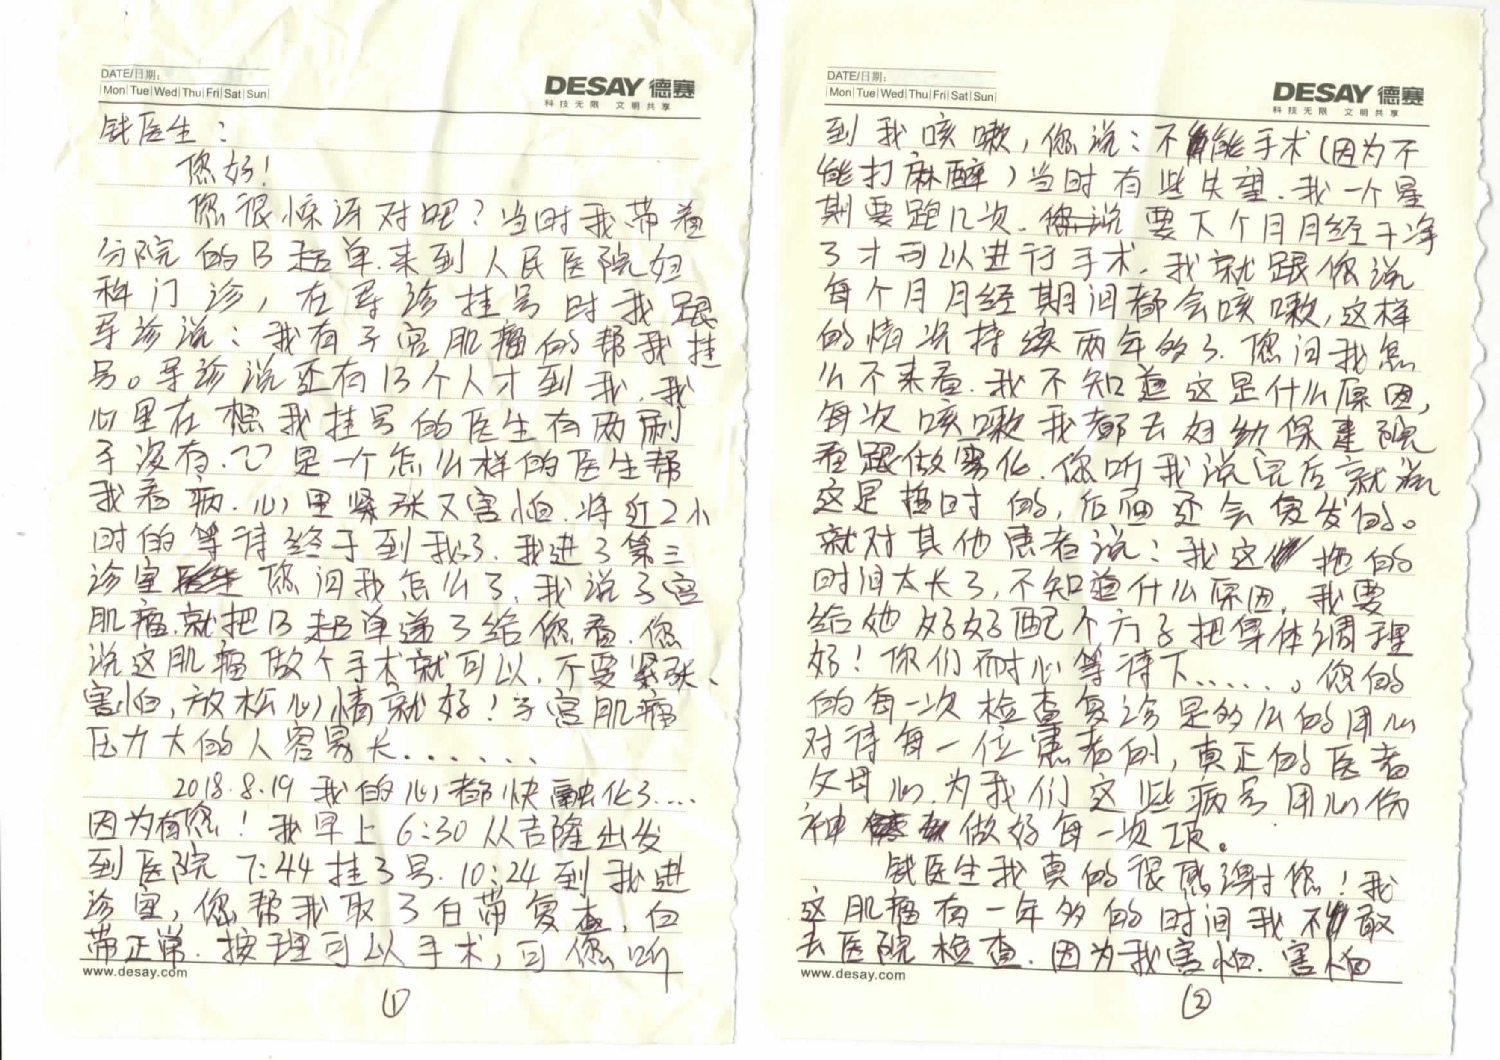 DATE/日期:
Mon|Tue|Wed|Thu|Fri|Sat|Sun|
DESAY 德赛
科技无限 文明共享
钱医生：
您好！
您很惊讶对吧？当时我带着
分院的B超单.来到人民医院妇
科门诊，在导诊挂号时我跟
导诊说：我有子宫肌瘤的帮我挂
号。导诊说还有13个人才到我.我
心里在想我挂号的医生有两刷
子没有.它是一个怎么样的医生帮
我看病.心里紧张又害怕.将近2小
时的等待终于到我了.我进了第三
诊室 您问我怎么了.我说子宫
肌瘤.就把B超单递了给您看.您
说这肌瘤做个手术就可以.不要紧张、
害怕，放松心情就好！子宫肌瘤
压力大的人容易长......
2018.8.19 我的心都快融化了....
因为有您！我早上6:30从吉隆出发
到医院7:44挂了号.10:24到我进
诊室，您帮我取了白带复查，白
带正常.按理可以手术，可您听
www.desay.com
①
DATE/日期:
Mon|Tue|Wed|Thu|Fri|Sat|Sun|
DESAY 德赛
科技无限 文明共享
到我咳嗽，您说：不能手术(因为不
能打麻醉)当时有些失望.我一个星
期要跑几次.您说要下个月月经干净
了才可以进行手术.我就跟您说
每个月月经期间都会咳嗽，这样
的情况持续两年多了.您问我怎
么不来看.我不知道这是什么原因，
每次咳嗽我都去妇幼保建院
看跟做雾化.您听我说完后就说
这是暂时的，后面还会复发的。
就对其他患者说：我这 拖的
时间太长了，不知道什么原因，我要
给她好好配个方子把身体调理
好！你们耐心等待下......。您的
的每一次检查复诊是多么的用心
对待每一位患者例，真正的医者
父母心.为我们这些病号用心伤
神 做好每一次项。
钱医生我真的很感谢您！我
这肌瘤有一年多的时间我不敢
去医院检查.因为我害怕.害怕
www.desay.com
②